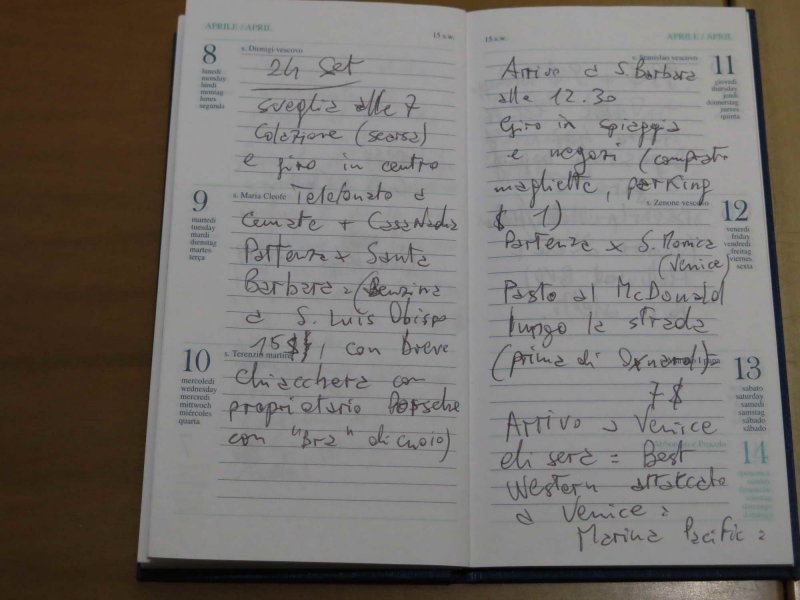 APRILE / APRIL
15 s.w.
8
s. Dionigi vescovo
lunedì
monday
lundi
montag
lunes
segunda
24 Set
sveglia alle 7
Colazione (scarsa)
e giro in centro
9
s. Maria Cleofe
martedì
tuesday
mardi
dienstag
martes
terça
Telefonato a
Cernate + Casa Nadia
Partenza x Santa
Barbara = (Benzina
a S. Luis Obispo
10
s. Terenzio martire
mercoledì
wednesday
mercredi
mittwoch
miércoles
quarta
15$, con breve
chiacchera con
proprietario Porsche
con "Bra" di cuoio)
15 s.w.
APRILE / APRIL
s. Stanislao vescovo
11
giovedì
thursday
jeudi
donnerstag
jueves
quinta
Arrivo a S. Barbara
alle 12.30
Giro in spiaggia
e negozi (comprato
magliette, parking
$ 1)
s. Zenone vescovo
12
venerdì
friday
vendredi
freitag
viernes
sexta
Partenza x S. Monica
(Venice)
Pasto al McDonald
lungo la strada
(prima di Oxnard) =
13
sabato
saturday
samedi
samstag
sábado
sábado
7 $
Arrivo a Venice
di sera = Best
14
Western attaccato
a Venice =
Marina Pacific =